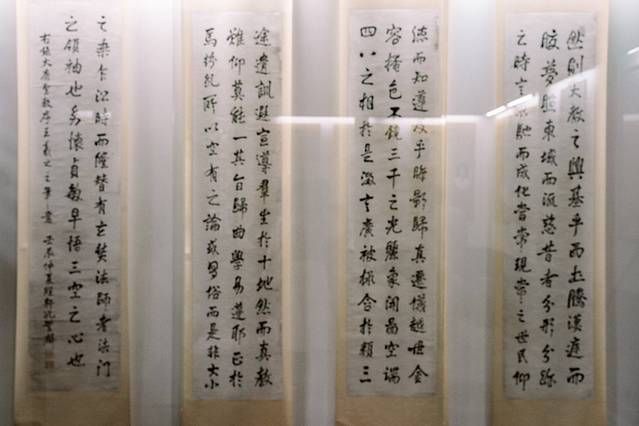 然則大教之興基乎西土騰漢庭而
皎夢照東域而流慈昔者分形分跡
之時言未馳而成化當常現常之世民仰
德而知遵及乎晦影歸真遷儀越世金
容掩色不鏡三千之光麗象開圖空端
四八之相於是微言廣被拯含於類三
途遺訓遐宣導羣生於十地然而真教
難仰莫能一其旨歸曲學易遵耶正於
焉紛糺所以空有之論或習俗而是非大小
之乘乍沿時而隆替有玄奘法師者法門
之領袖也幼懷貞敏早悟三空之心也
右錄大唐聖教序王羲之之筆意 壬辰仲夏